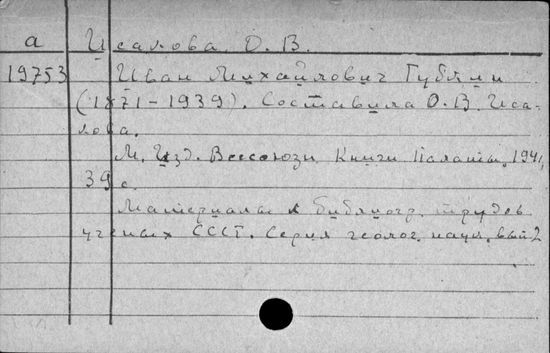 а Исакова. О. В.
19753 Иван Михайлович Губкин
(1871-1939). Составила О.В. Иса-
кова.
М. Изд. Всесоюзн. Книжн. Палаты, 1941,
39 с.
Материалы к библиогр. трудов
ученых СССР. Серия геолог. наук, вып 2